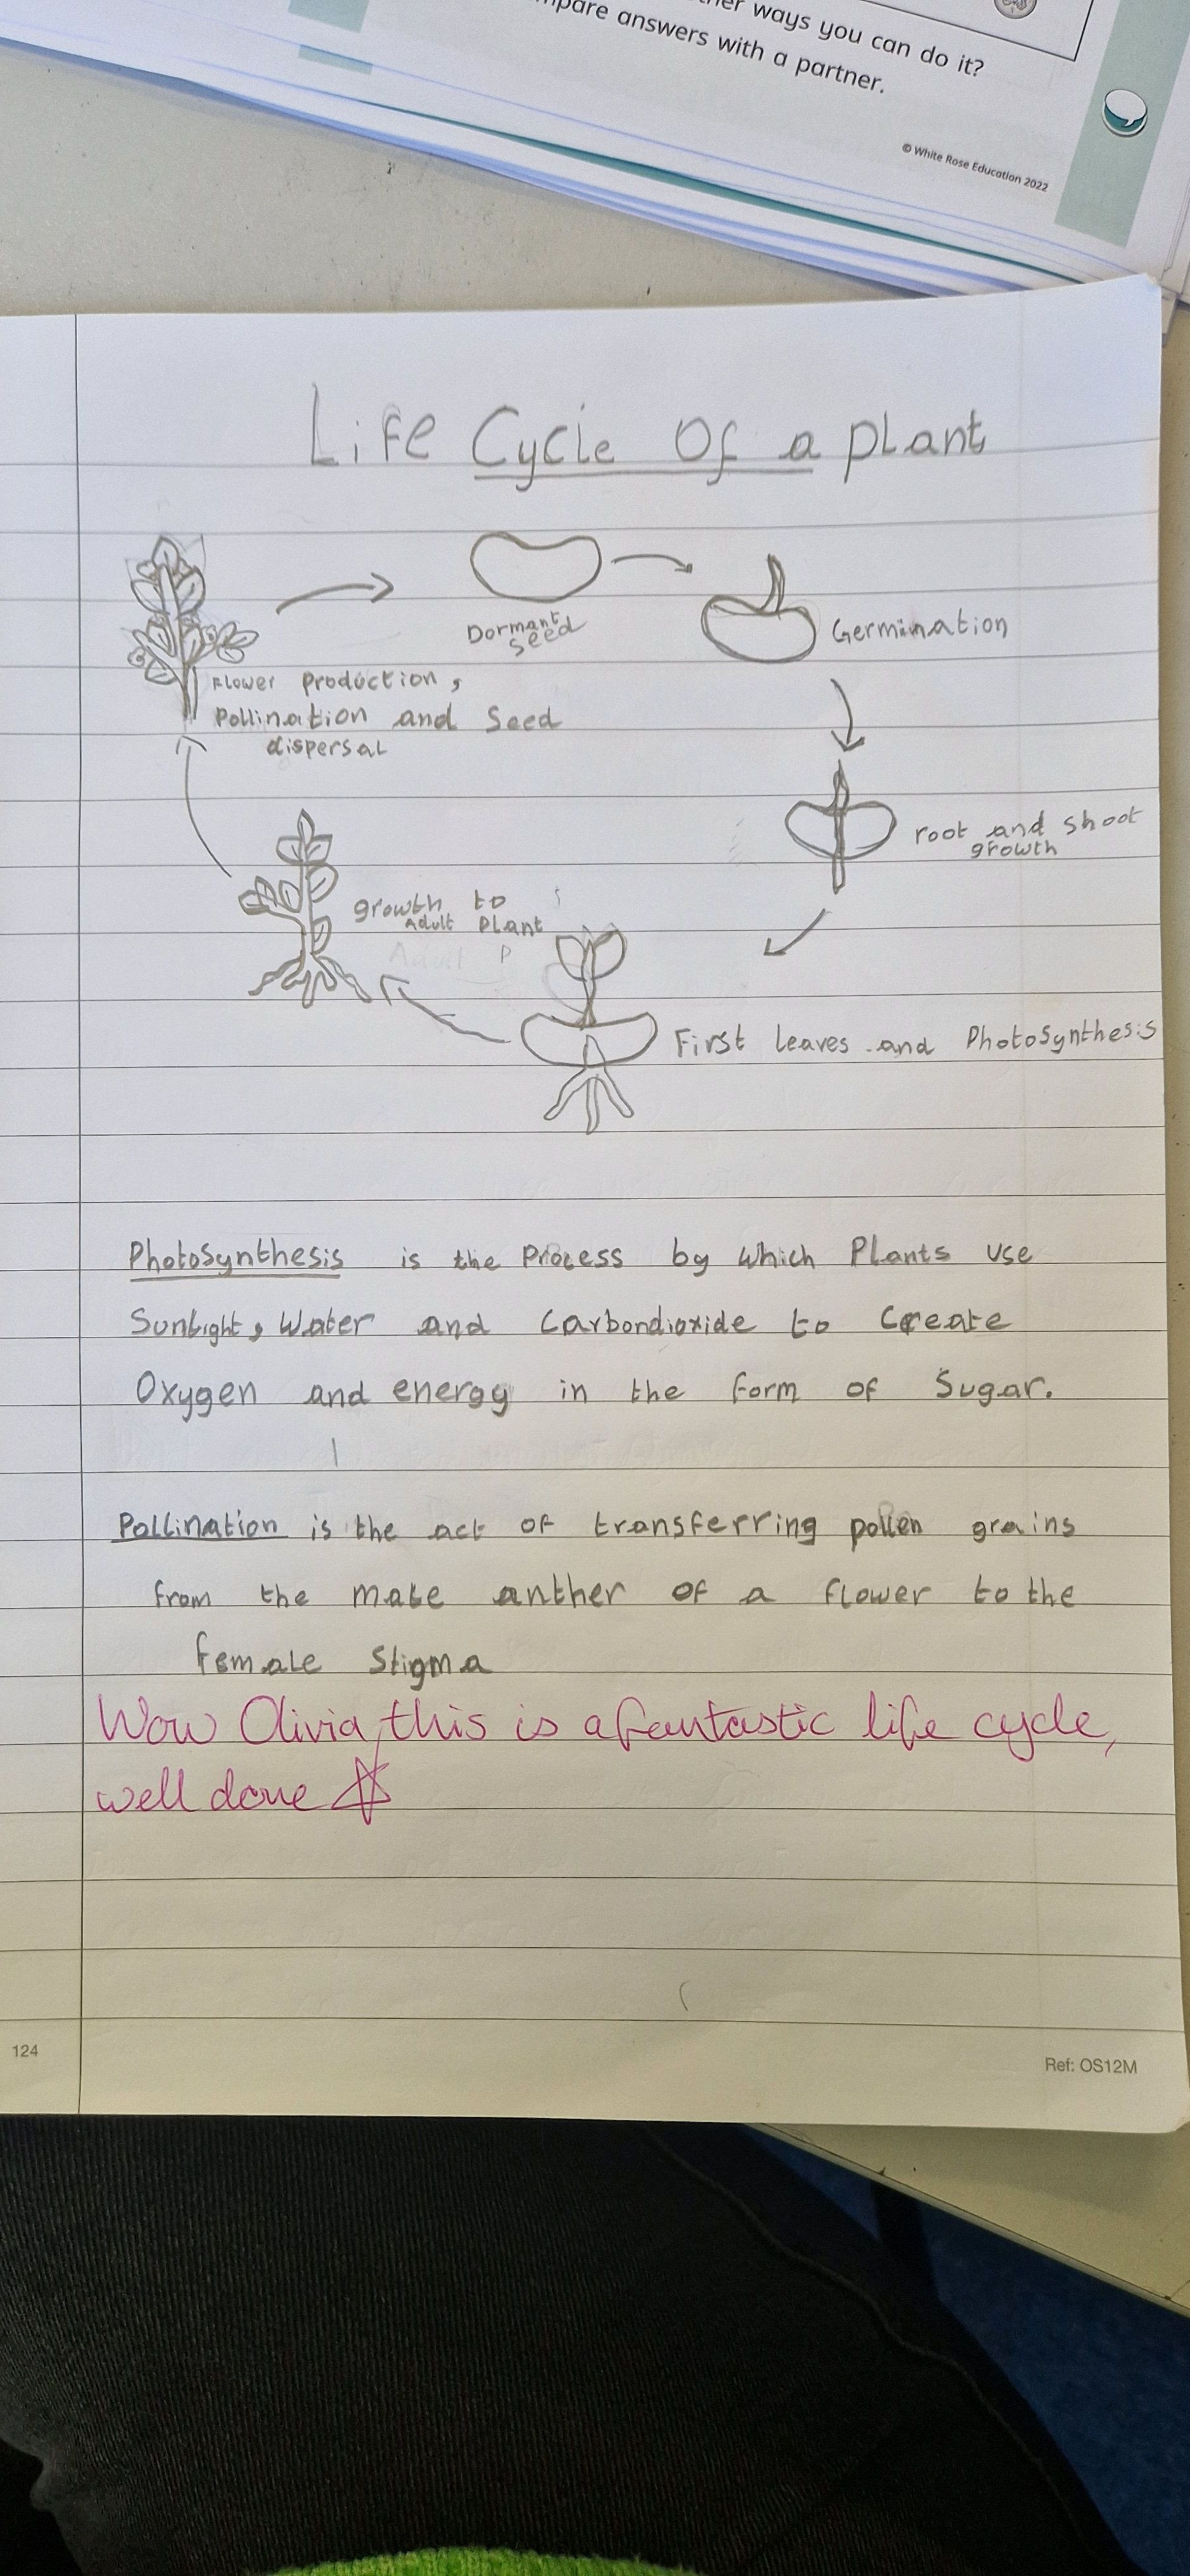 her ways you can do it?
mpare answers with a partner.
© White Rose Education 2022
Life Cycle Of a plant
Dormant
seed
Germination
Flower production,
Pollination and Seed
dispersal
root and shoot
growth
growth to
Adult Plant
Adult P
First leaves and Photosynthesis
Photosynthesis is the Process by which Plants use
Sunlight, Water and Carbondioxide to Create
Oxygen and energy in the form of Sugar.
Pollination is the act of transferring pollen grains
from the male anther of a flower to the
female Stigma
Wow Olivia, this is a fantastic life cycle,
well done
124
Ref: OS12M